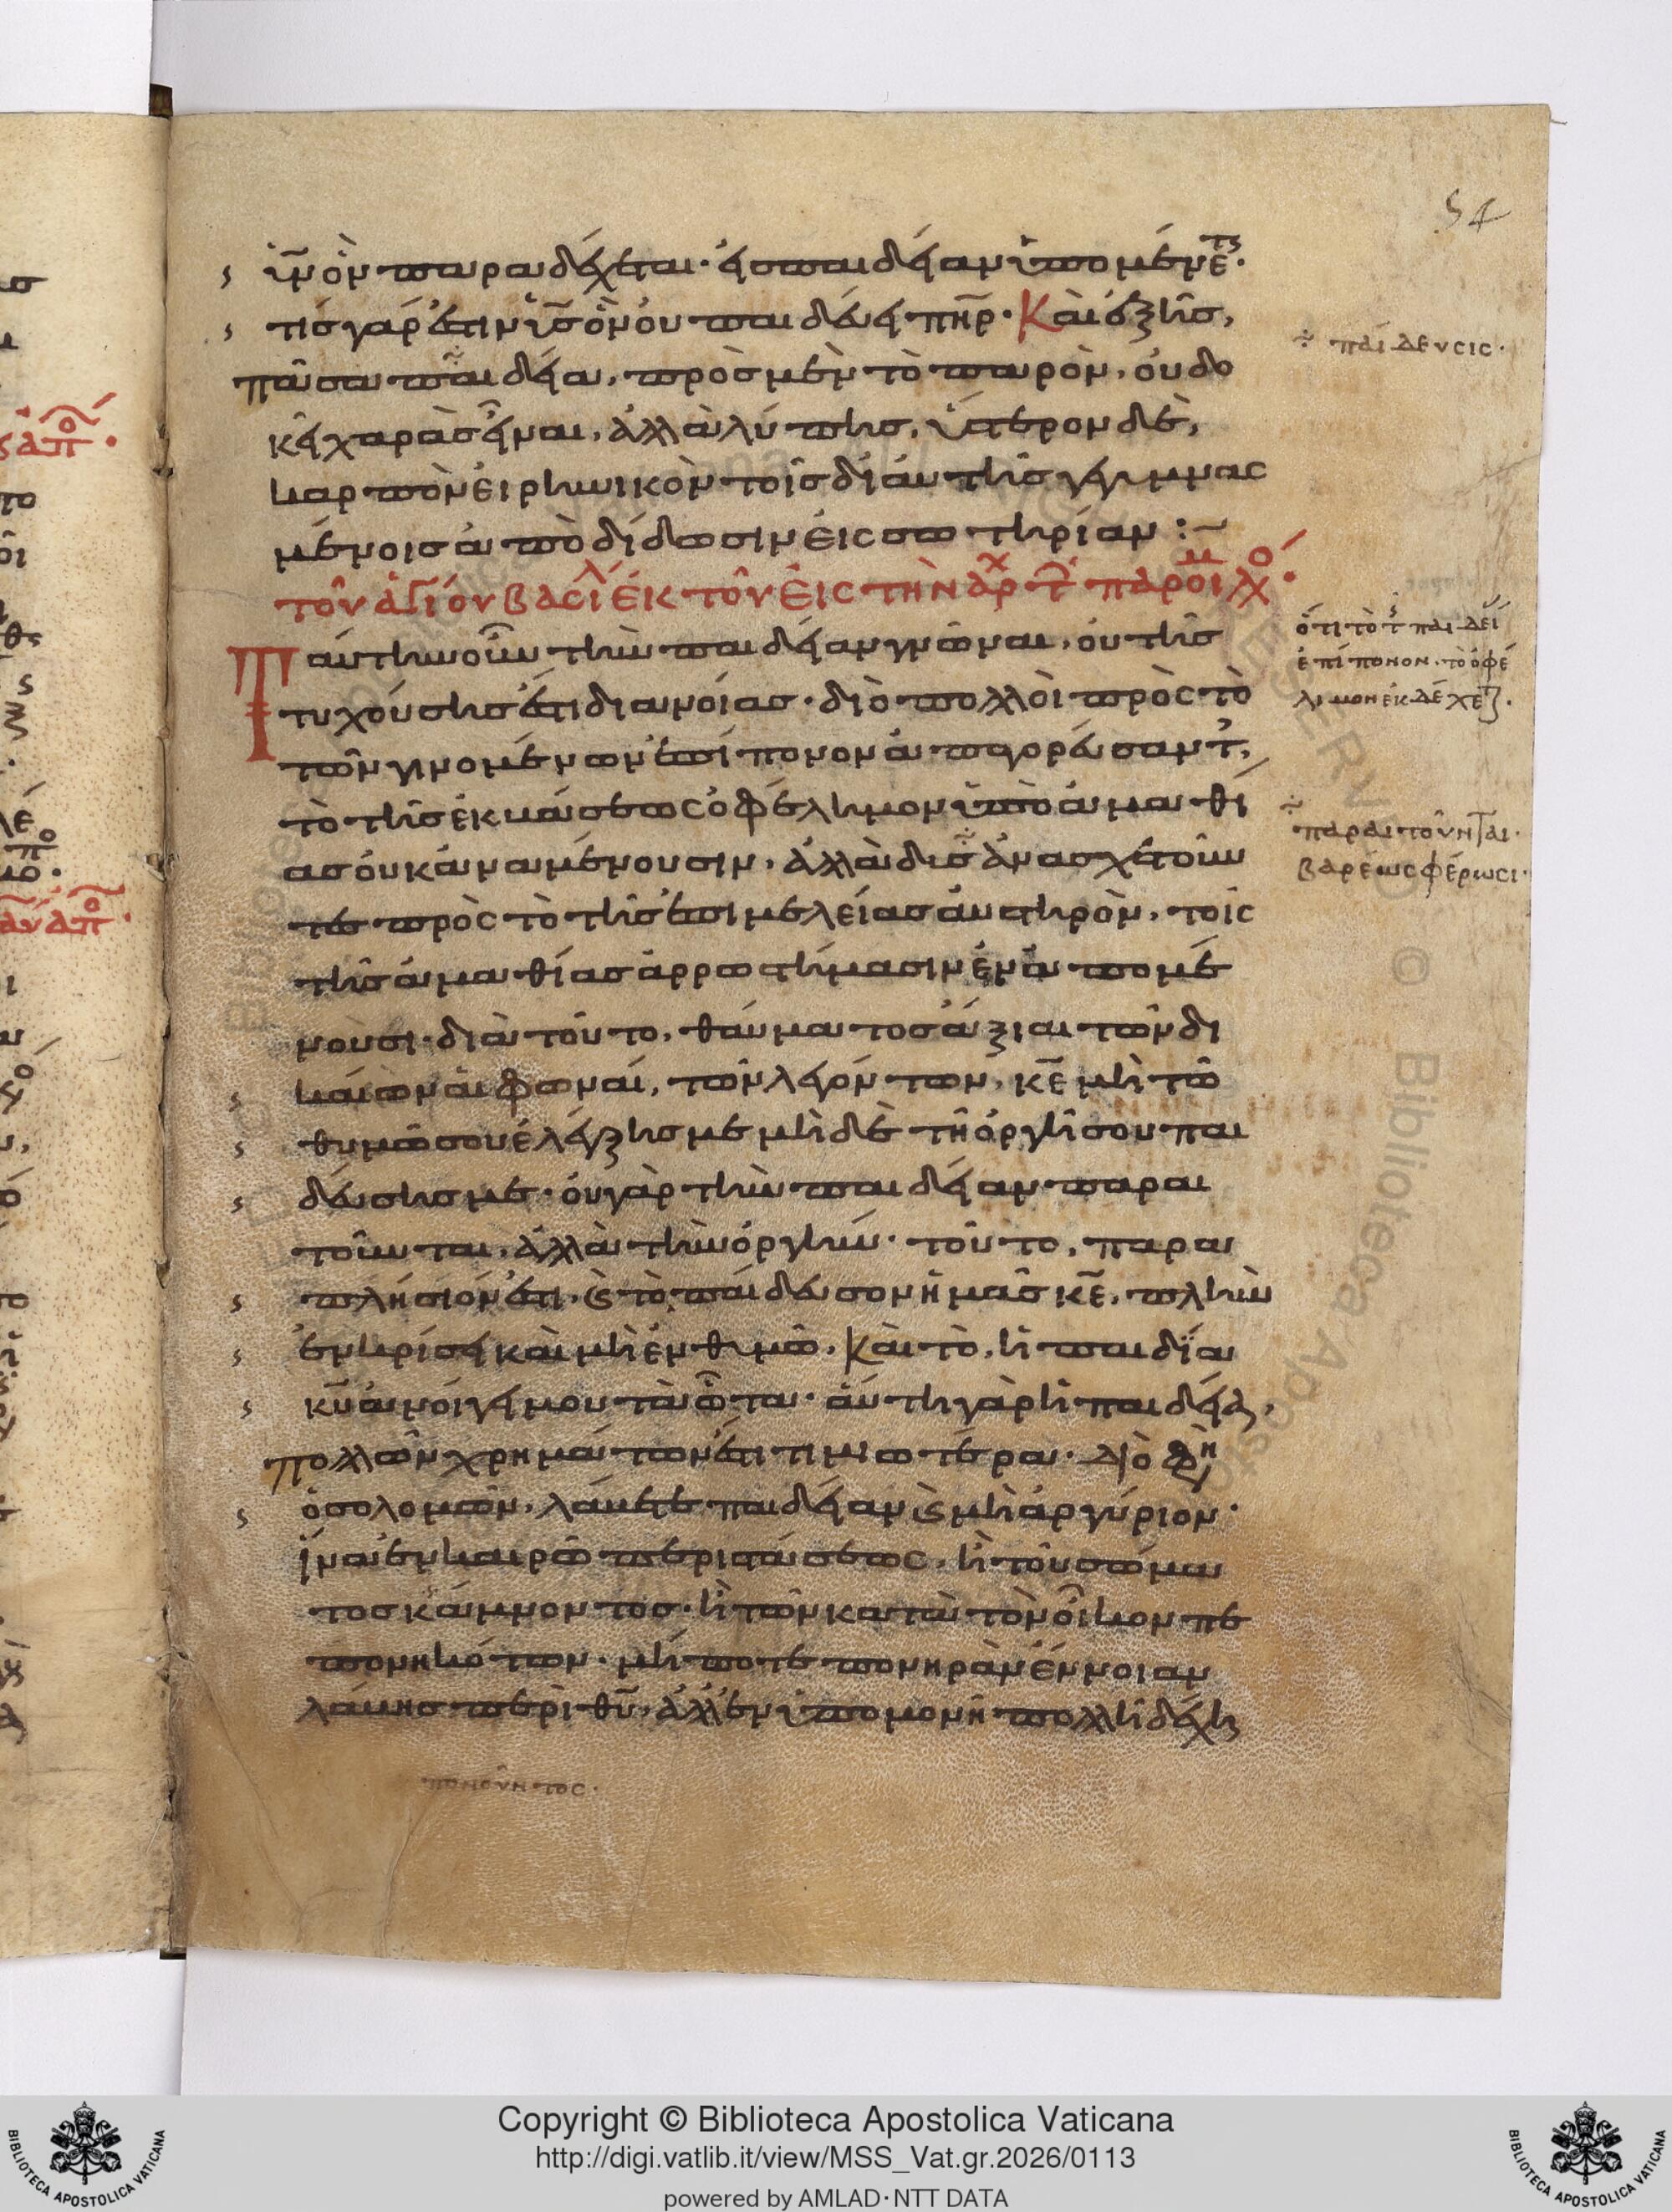 54
ῡν ὃν παραδέχεται· εἰς παιδείαν ὑπομένετε·
τίς γάρ ἐστιν ῡς ὃν οὐ παιδεύει πη̄ρ· Καὶ ἑξῆς,
πᾶσα παιδεία, πρὸς μὲν τὸ παρὸν, οὐ δο
κεῖ χαρᾶς εἶναι, ἀλλὰ λύπης, ὕστερον δὲ,
καρπὸν εἰρηνικὸν τοῖς δι' αὐτῆς γεγυμνασ
μένοις ἀποδίδωσιν εἰς σωτηρίαν :~
τοῦ ἁγίου βασιλ ἐκ τοῦ εἰς τὴν ἀρχ τ παροιμ λόγ·
παίδευσις·
Ταύτην οὖν τὴν παιδείαν γνῶναι, οὐ τῆς
τυχούσης ἐστὶ διανοίας· διὸ πολλοὶ πρὸς τὸ
τῶν γινομένων ἐπίπονον ἀπαγορεύσαντ,
τὸ τῆς ἐκβάσεως ὀφέλημον ὑπὸ ἀμαθί
ας οὐκ ἀναμένουσιν, ἀλλὰ δυσανασχετοῦν
τες πρὸς τὸ τῆς ἐπιμελείας αὐστηρὸν, τοῖς
τῆς ἀμαθίας ἀρρωστήμασιν ἐναπομέ
νουσι· διὰ τοῦτο, θαύματος ἄξιαι τῶν δι
καίων αἱ φωναί, τῶν λεγόντων, κ̄ε μὴ τῶ
θυμῶ σου ἐλέγξης με μὴ δὲ τῆ ὀργῆ σου παι
δεύσης με· οὐ γὰρ τὴν παιδείαν παραι
τοῦνται, ἀλλὰ τὴν ὀργήν· τοῦτο, παρα
πλήσιόν ἐστι, ϗ τὸ παίδευσον ἡμᾶς κ̄ε, πλὴν
ἐν κρίσει καὶ μὴ ἐν θυμῶ. Καὶ τὸ, ἡ παιδία
κ̄υ ἀνοίγει μου τὰ ὦτα· αὕτη γὰρ ἡ παιδεία,
πολλῶν χρημάτων ἐστὶ τιμιωτέρα· Διό φη
ὁ σολομῶν, λάβετε παιδείαν ϗ μὴ ἀργύριον·
ἵνα ἐν καιρῶ περιστάσεως, ἢ τοῦ σώμα
τος κάμνοντος· ἢ τῶν κατὰ τὸν οἶκον πε
πονηκότων· μή ποτε πονηρὰν ἔννοιαν
λάβης περὶ θ̄υ, ἀλλ' ἐν ὑπομονῆ πολλῆ δέχη
ὅτι τὸ τ παιδεί
ἐπίπονον· τὸ ὀφέ
λιμον ἐκδέχετ.
παραιτοῦνται·
βαρέως φέρωσι·
πονοῦντος·
Copyright © Biblioteca Apostolica Vaticana
http://digi.vatlib.it/view/MSS_Vat.gr.2026/0113
powered by AMLAD·NTT DATA
BIBLIOTECA APOSTOLICA VATICANA
BIBLIOTECA APOSTOLICA VATICANA